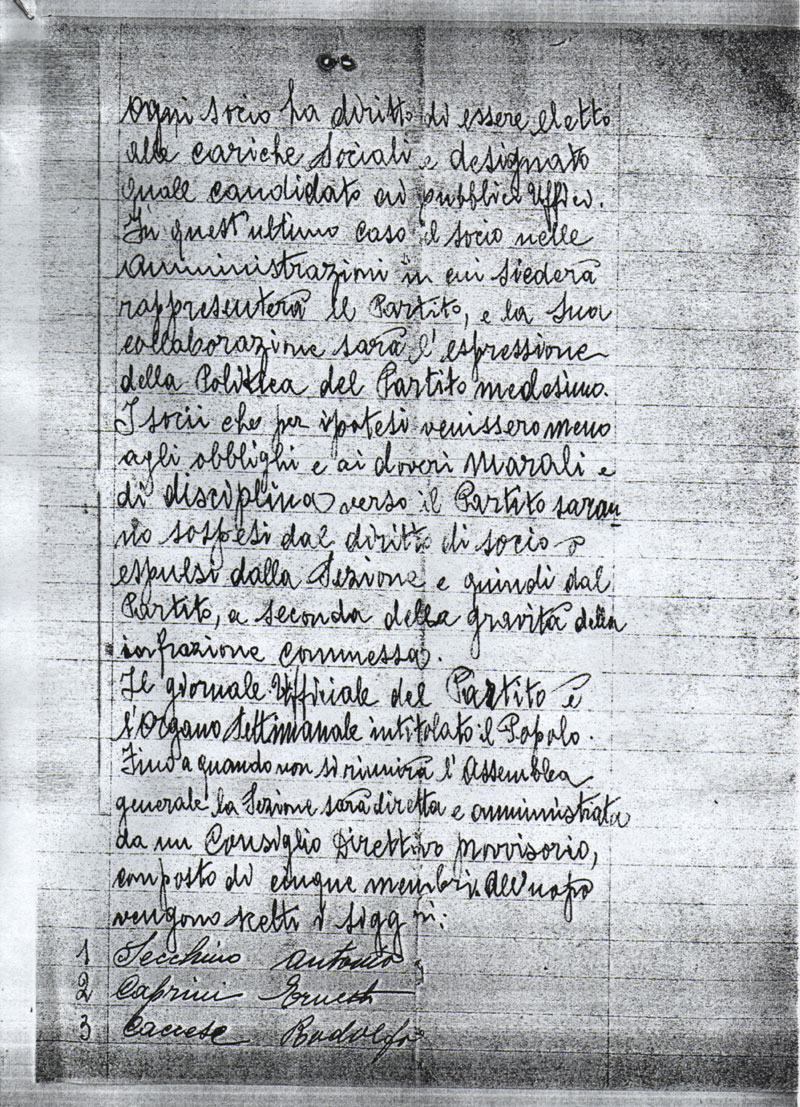 Ogni socio ha diritto di essere eletto
alle cariche Sociali e designato
quale candidato ai pubblici Uffici.
In quest'ultimo caso il socio nelle
Amministrazioni in cui siederà
rappresenterà il Partito, e la sua
collaborazione sarà l'espressione
della Politica del Partito medesimo.
I socii che per ipotesi venissero meno
agli obblighi e ai doveri Morali e
di disciplina verso il Partito saran
no sospesi dal diritto di socio o
espulsi dalla Sezione e quindi dal
Partito, a seconda della gravità della
infrazione commessa.
Il giornale Ufficiale del Partito è
l'Organo Settimanale intitolato il Popolo.
Fino a quando non si riunirà l'Assemblea
generale la Sezione sarà diretta e amministrata
da un Consiglio Direttivo provvisorio,
composto di cinque membri. All'uopo
vengono scelti i sigg ri:
1 Antonio
2 Caprini Ernest
3 Caccese Rodolfo